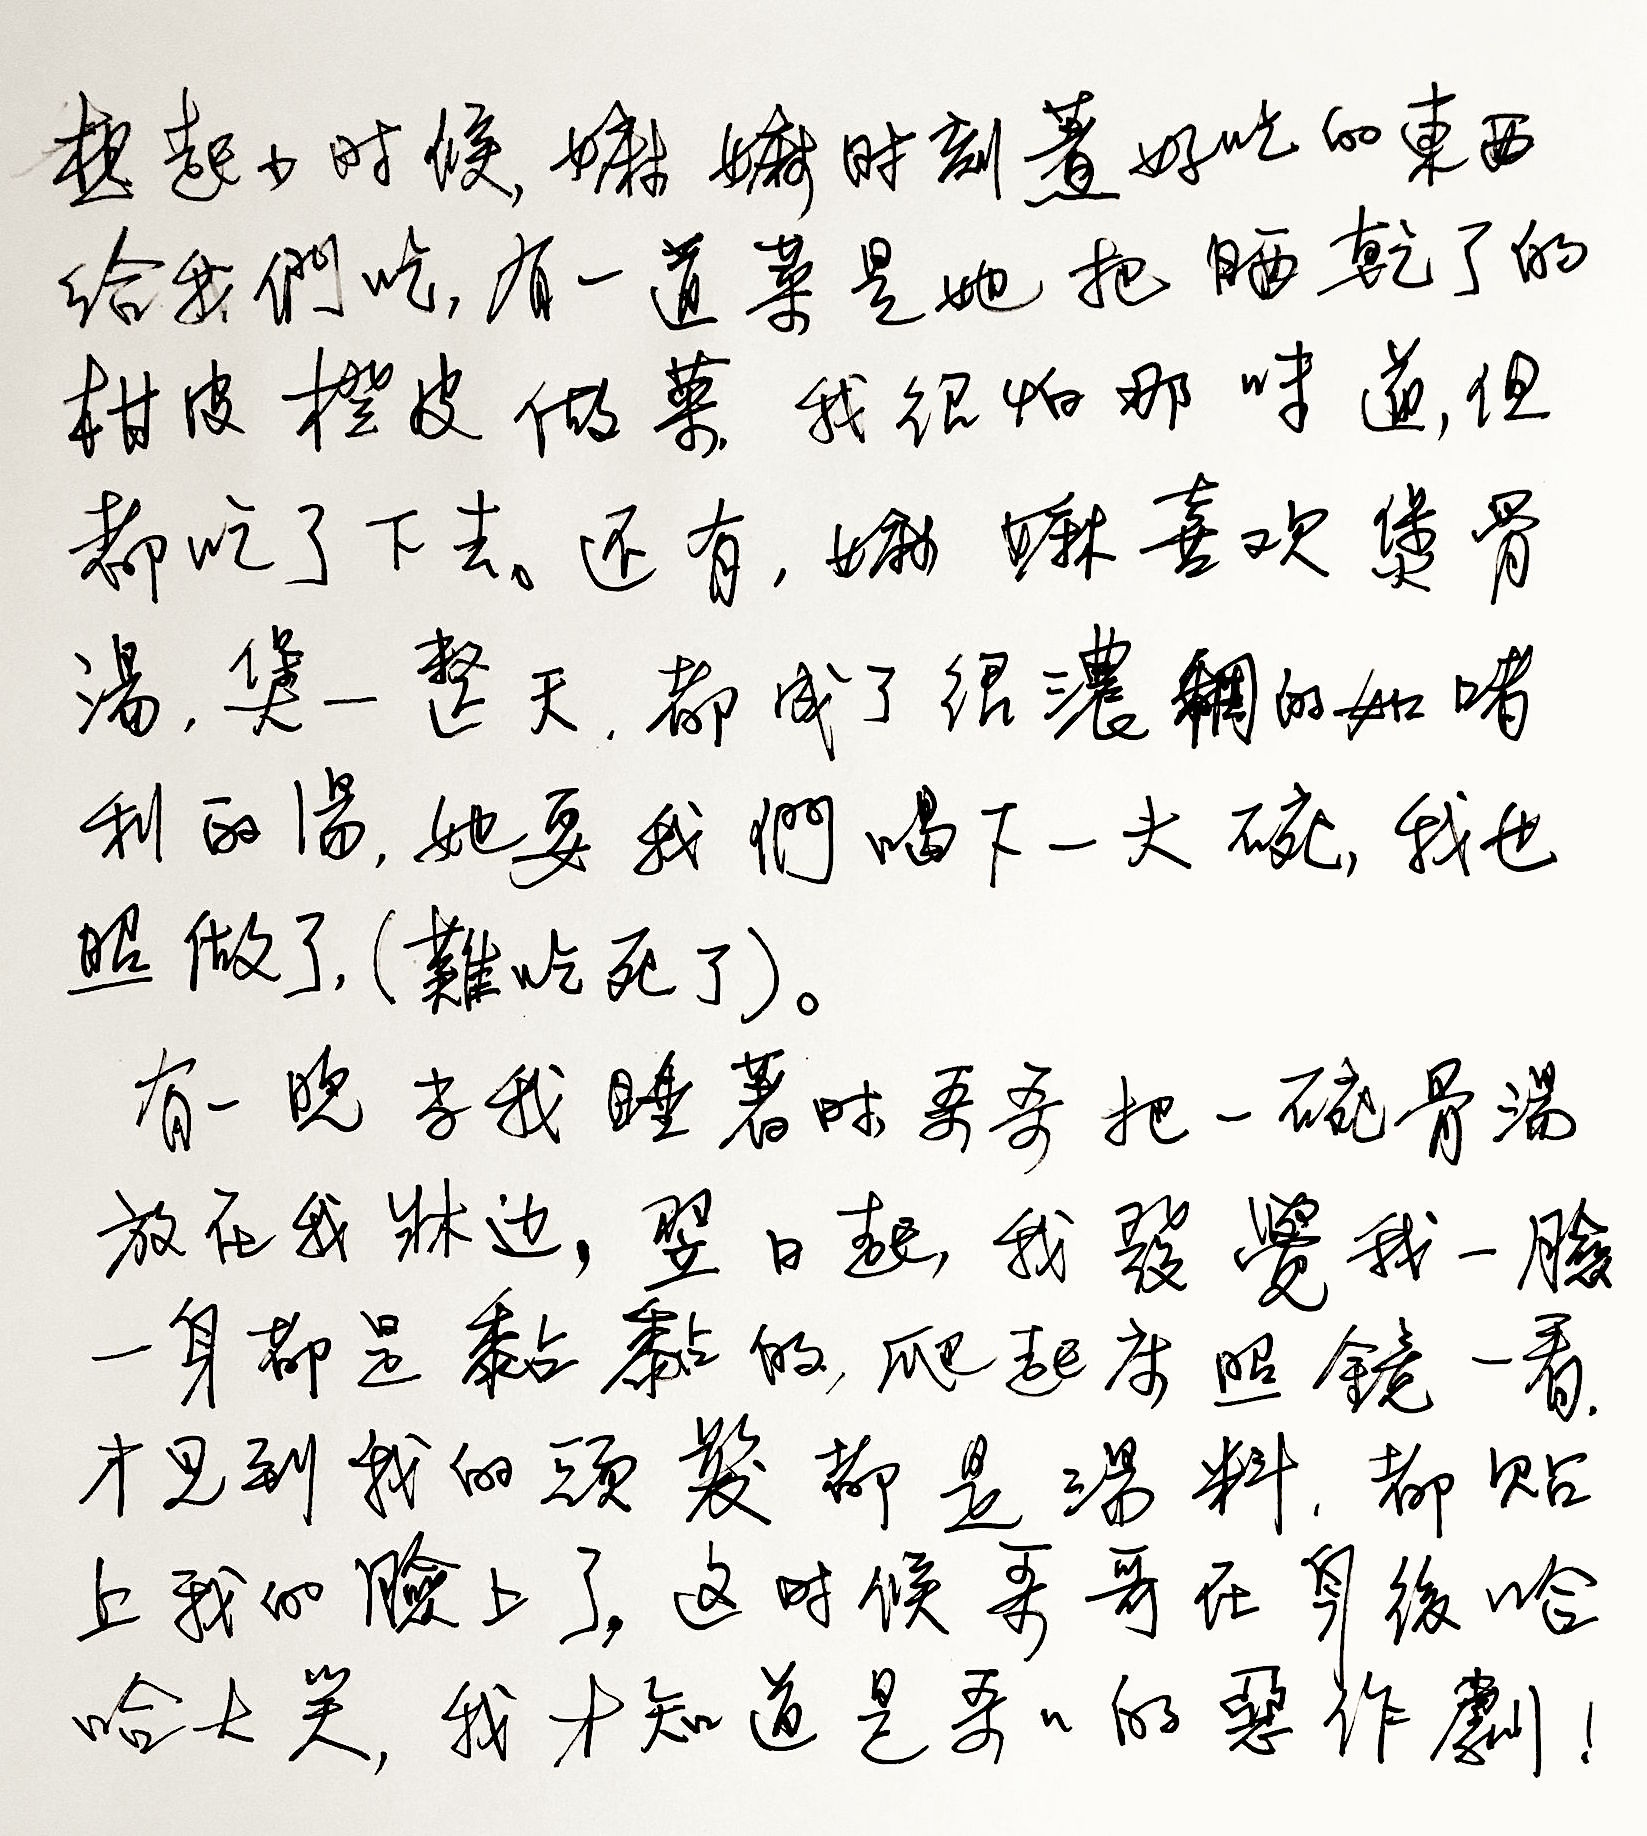 想起小时候,嫲嫲时刻煮好吃的東西
给我們吃,有一道菜是她把晒乾了的
柑皮橙皮做菜,我很怕那味道,但
都吃了下去。还有,嫲嫲喜欢煲骨
湯,煲一整天,都成了很濃稠的如啫
利的湯,她要我們喝下一大碗,我也
照做了,(難吃死了)。
有一晚李我睡著时哥哥把一碗骨湯
放在我牀边,翌日起,我發覺我一臉
一身都是黏黏的,爬起床照鏡一看,
才見到我的頭髮都是湯料,都貼
上我的臉上了,这时候哥哥在身後哈
哈大笑,我才知道是哥〃的惡作劇!